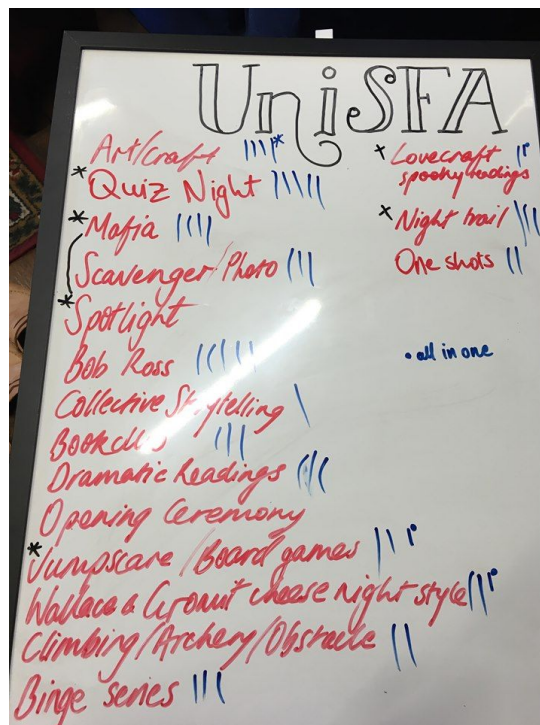 UniSFA
Art/craft ||||*
* Quiz Night |||||
* Mafia ||||
Scavenger/Photo |||
* Spotlight
Bob Ross |||||
Collective Storytelling \
Bookclub |||
Dramatic Readings |||
Opening Ceremony
* Jumpscare / Board games |||
Wallace & Gromit cheese night style |||
Climbing/Archery/Obstacle ||
Binge series |||
x Lovecraft ||
spooky readings
x Night trail |||
One shots ||
• all in one